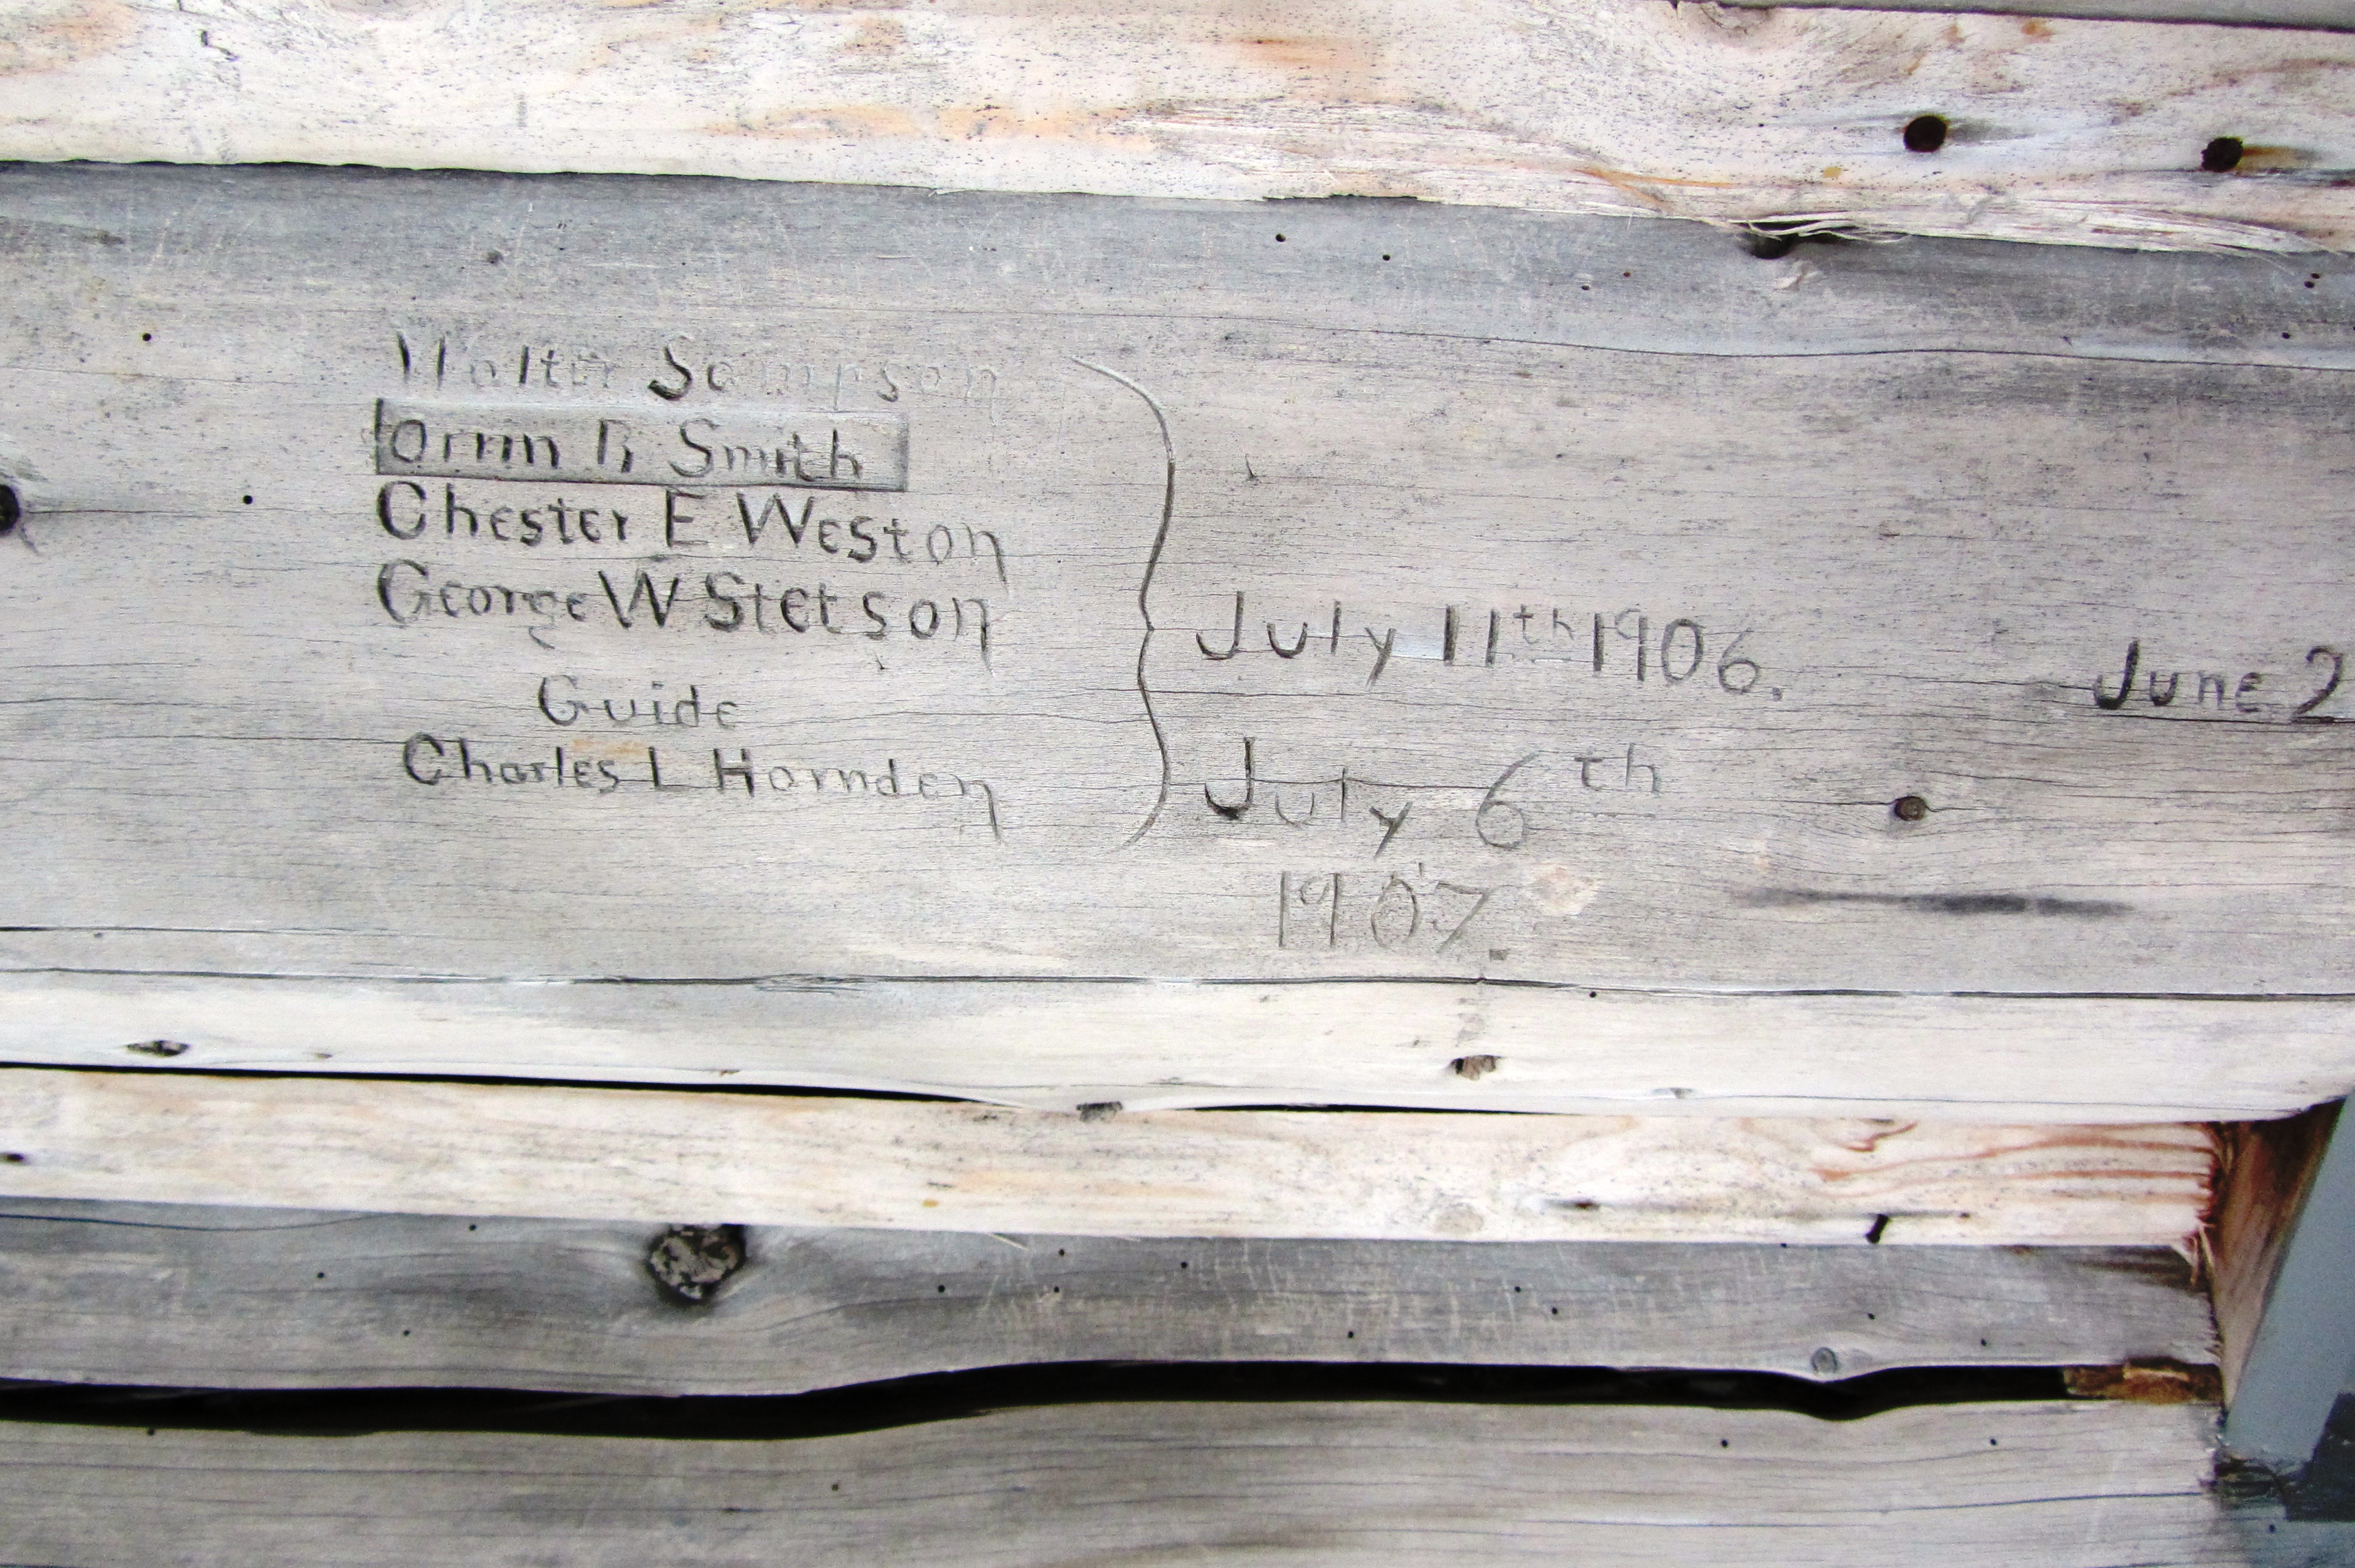 Walter Sampson
Orrin R Smith
Chester E Weston
George W Stetson
Guide
Charles L Harnden
July 11th 1906.
July 6th
1907.
June 2